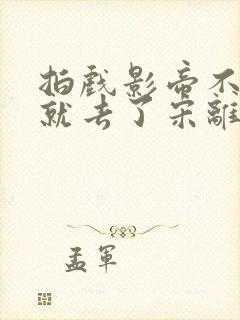 拍戲影帝不
就去了宋離
孟軍